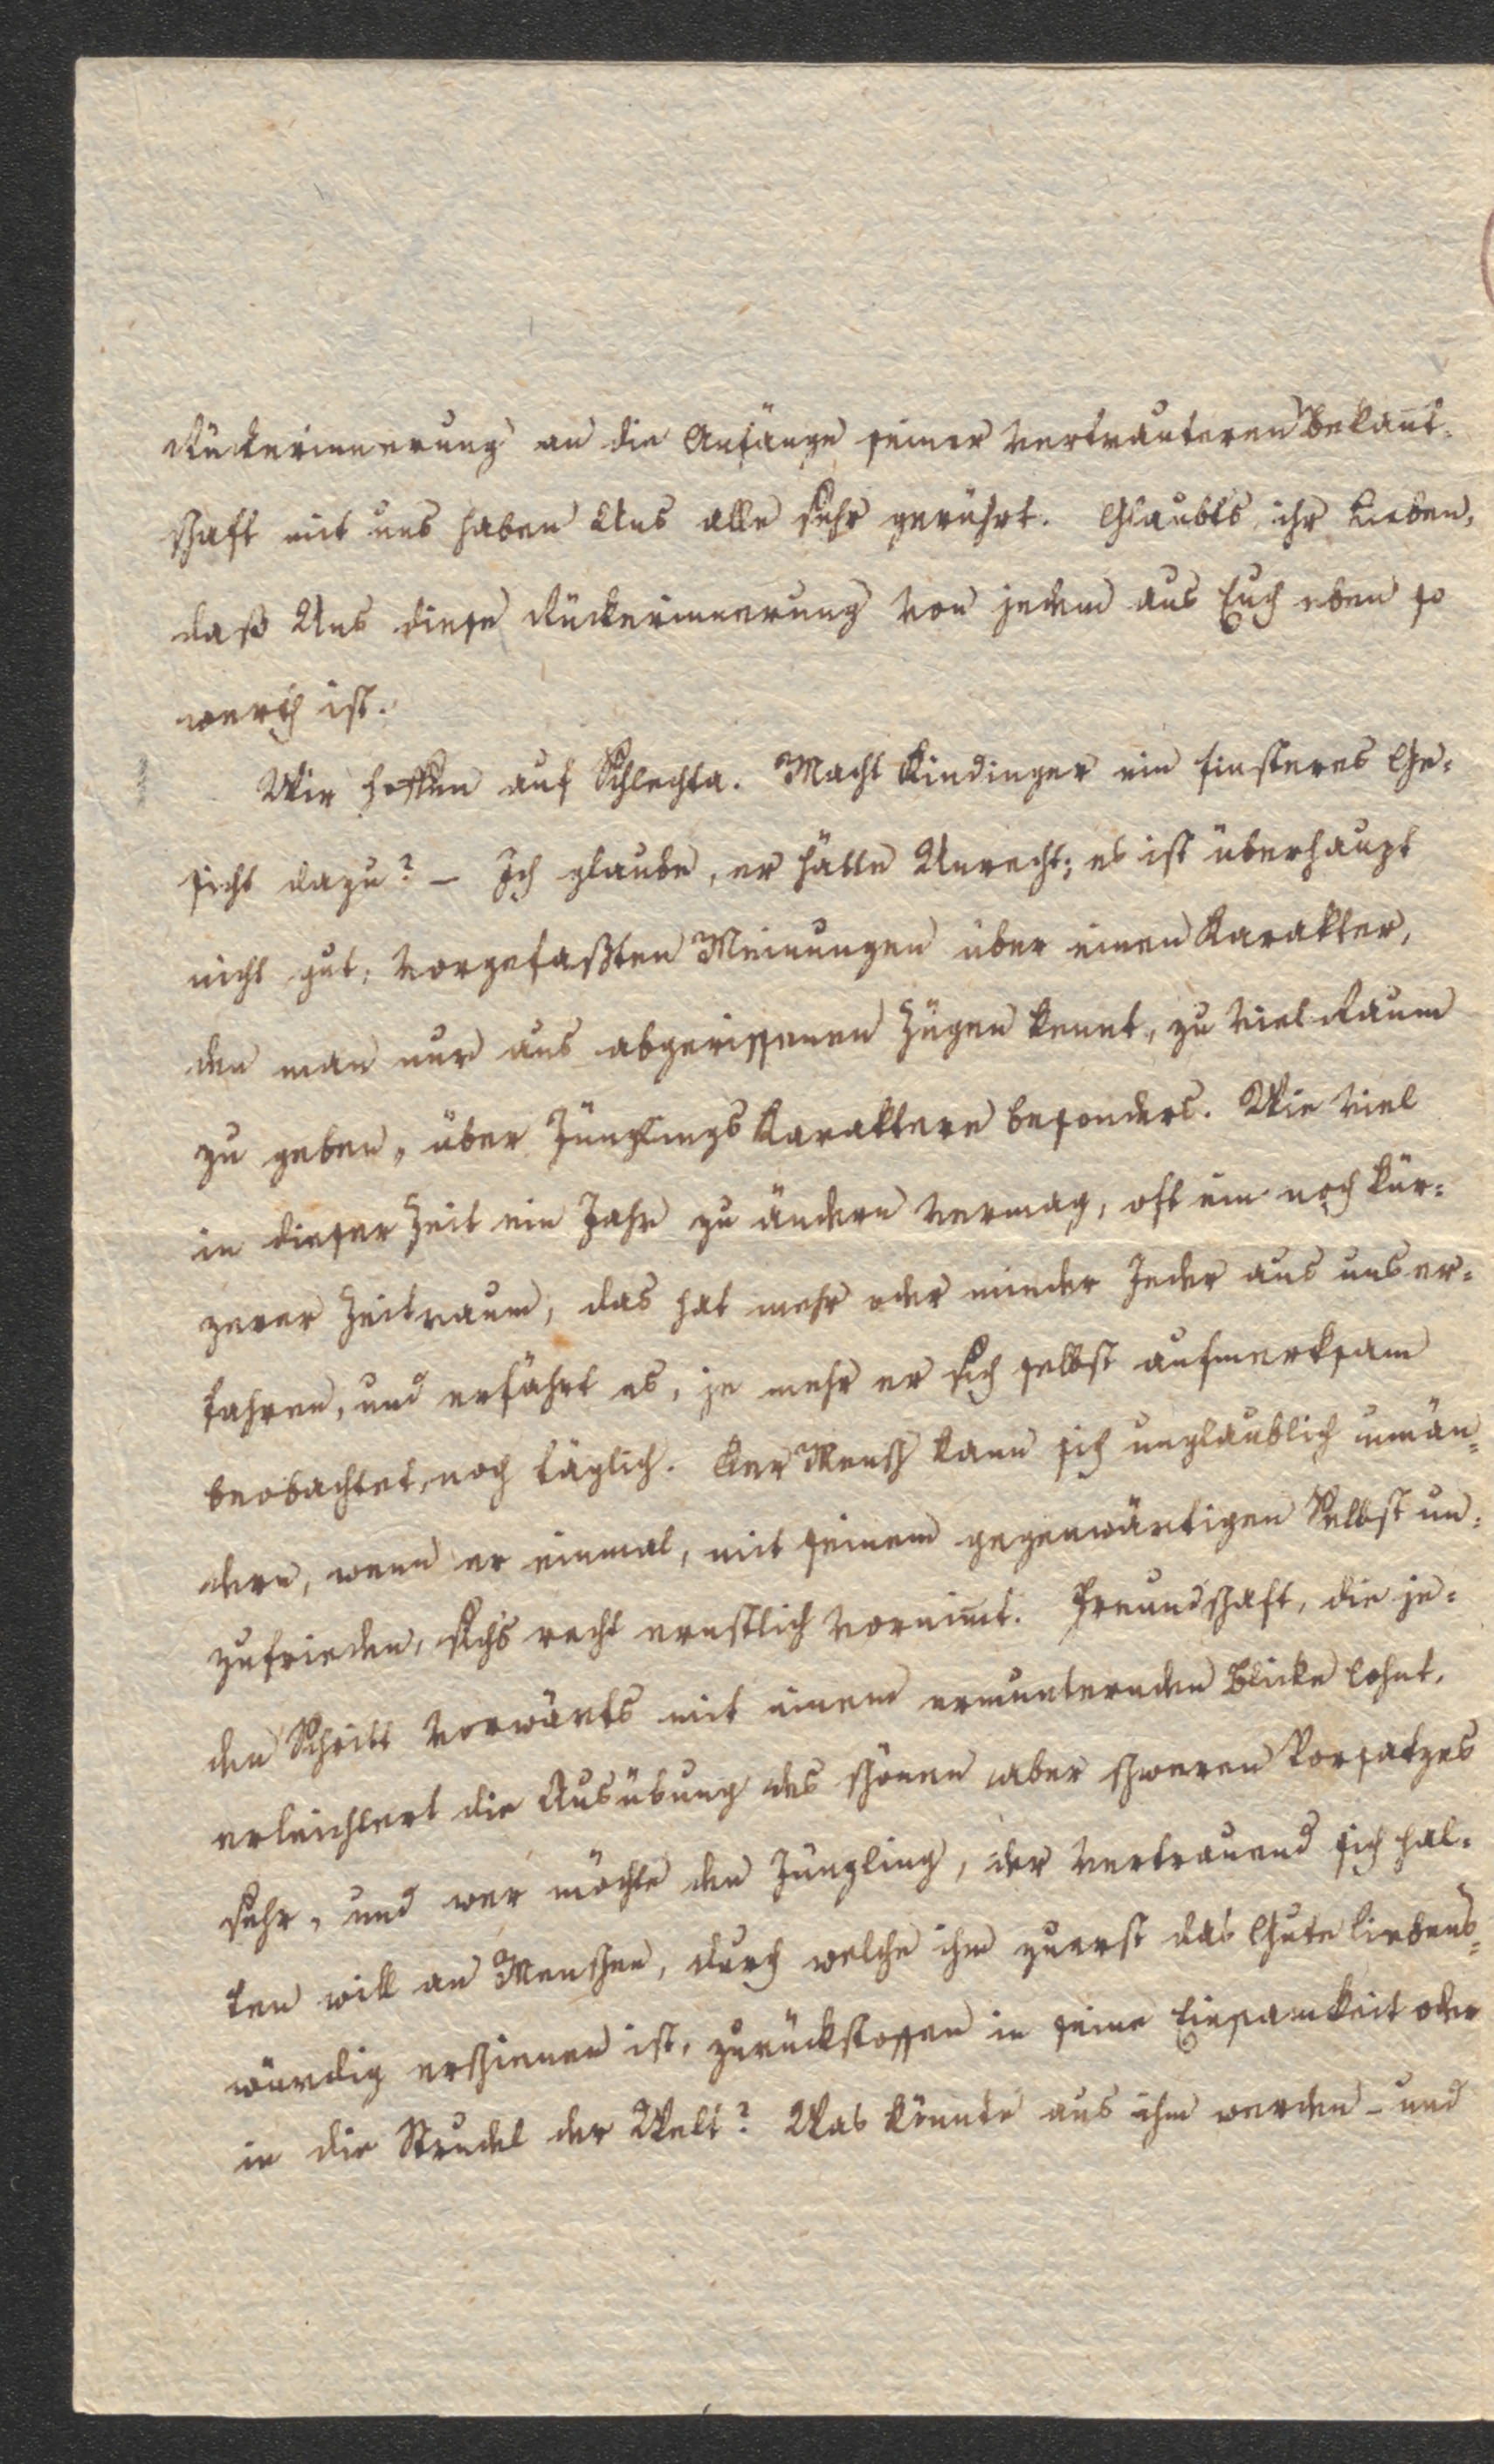 Rückerinnerung an die Anfänge seiner vertrauteren Bekan̄t-
schaft mit uns haben Uns alle sehr gerührt. Glaubts, ihr Lieben,
daß Uns diese Rückerinnerung von jedem aus Euch eben so
werth ist.
Wir hoffen auf Schlechta. Macht Kindinger ein finsteres Ge-
sicht dazu? – Ich glaube, er hätte Unrecht; es ist überhaupt
nicht gut, vorgefaßten Meinungen über einen Karakter,
den man nur aus abgerissenen Zügen kennt, zu viel Raum
zu geben, über Jünglings Karaktere besonders. Wie viel
in dieser Zeit ein Jahr zu ändern vermag, oft ein noch kür-
zerer Zeitraum, das hat mehr oder minder Jeder aus uns er-
fahren, und erfährt es, je mehr er sich selbst aufmerksam
beobachtet, noch täglich. Der Mensch kann sich unglaublich umän-
dern, wenn er einmal, mit seinem gegenwärtigen Selbst un-
zufrieden, sichs recht ernstlich vornim̄t. Freundschaft, die je-
den Schritt vorwärts mit einem ermunternden Blicke lohnt,
erleichtert die Ausübung des schönen aber schweren Vorsatzes
sehr, und wer möchte den Jüngling, der vertrauend sich hal-
ten will an Menschen, durch welche ihm zuerst das Gute liebens-
würdig erschienen ist, zurückstossen in seine Einsamkeit oder
in die Strudel der Welt? Was könnte aus ihm werden – und